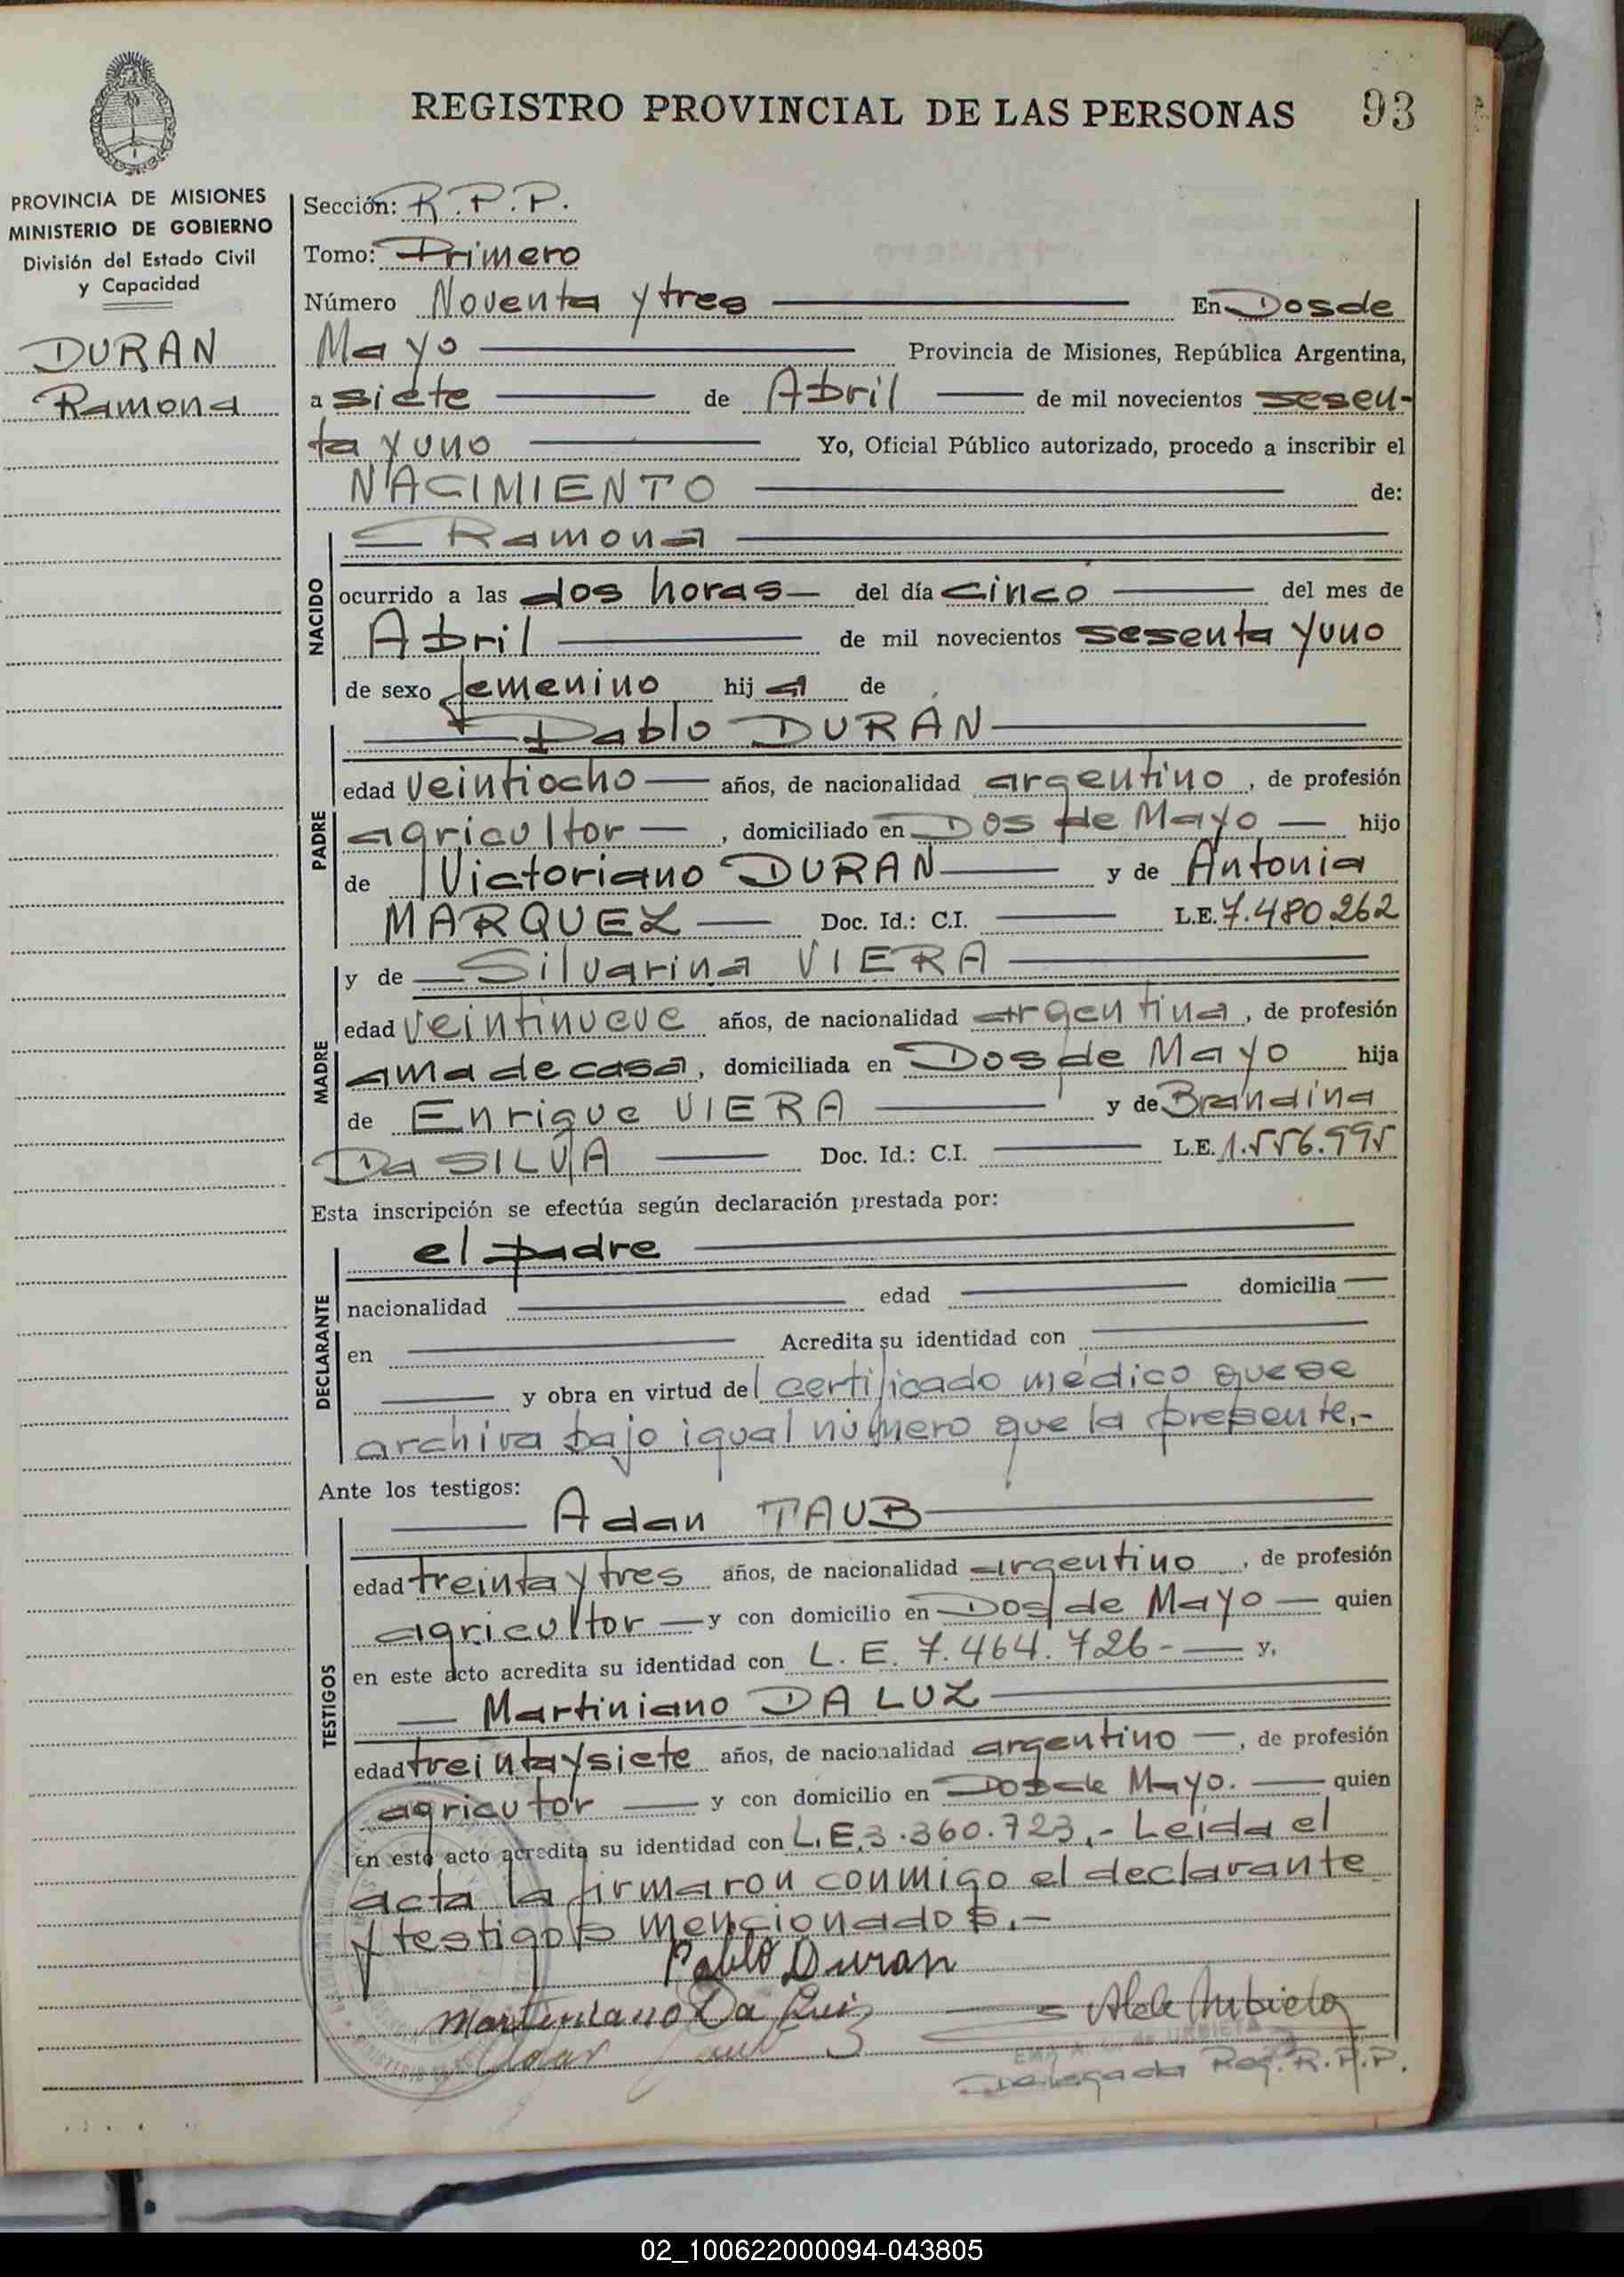 REGISTRO PROVINCIAL DE LAS PERSONAS 93
PROVINCIA DE MISIONES
MINISTERIO DE GOBIERNO
División del Estado Civil
y Capacidad
DURAN
Ramona
Sección: R.P.P.
Tomo: Primero
Número Noventa y tres En Dos de
Mayo Provincia de Misiones, República Argentina,
a siete de Abril de mil novecientos sesen-
ta y uno Yo, Oficial Público autorizado, procedo a inscribir el
NACIMIENTO de:
NACIDO
Ramona
ocurrido a las dos horas del día cinco del mes de
Abril de mil novecientos sesenta y uno
de sexo femenino hija de
PADRE
Pablo DURAN
edad veintiocho años, de nacionalidad argentino, de profesión
agricultor, domiciliado en Dos de Mayo hijo
de Victoriano DURAN y de Antonia
MARQUEZ Doc. Id.: C.I. L.E. 7.480.262
MADRE
y de Silvarina VIERA
edad veintinueve años, de nacionalidad argentina, de profesión
ama de casa, domiciliada en Dos de Mayo hija
de Enrique VIERA y de Brandina
Da SILVA Doc. Id.: C.I. L.E. 1.556.995
Esta inscripción se efectúa según declaración prestada por:
DECLARANTE
el padre
nacionalidad edad domicilia
en Acredita su identidad con
y obra en virtud del certificado médico que se
archiva bajo igual número que la presente.-
Ante los testigos:
TESTIGOS
Adan TAUB
edad treinta y tres años, de nacionalidad argentino, de profesión
agricultor y con domicilio en Dos de Mayo quien
en este acto acredita su identidad con L.E. 7.464.726- y,
Martiniano DA LUZ
edad treinta y siete años, de nacionalidad argentino, de profesión
agricutor y con domicilio en Dos de Mayo. quien
en este acto acredita su identidad con L.E. 3.360.723.- Leída el
acta la firmaron conmigo el declarante
y testigos mencionados.-
Pablo Duran
Martiniano Da Luis
Delegada Reg. R.P.P.
02_100622000094-043805